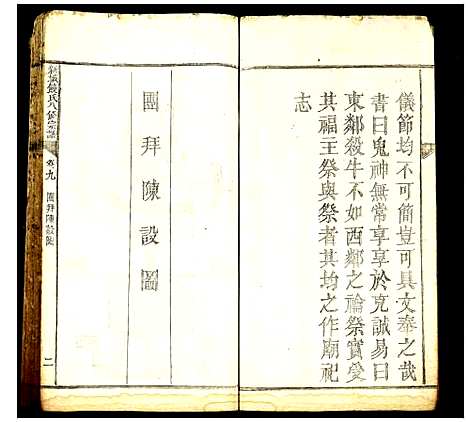 儀節均不可簡豈可具文奉之哉
書曰鬼神無常享享於克誠易曰
東鄰殺牛不如西鄰之禴祭實受
其福主祭與祭者其均之作廟祀
志
團拜陳設圖
氏八修宗譜
卷九
團拜陳設圖
二